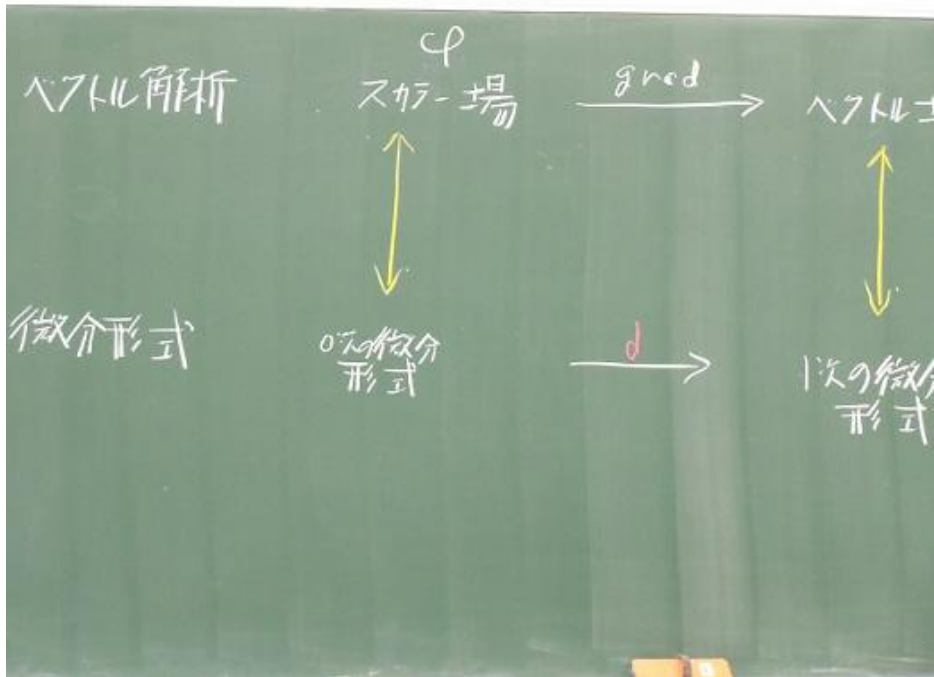 φ
ベクトル解析 スカラー場 grad ベクトル
d
微分形式 0次の微分
形式
1次の微分
形式